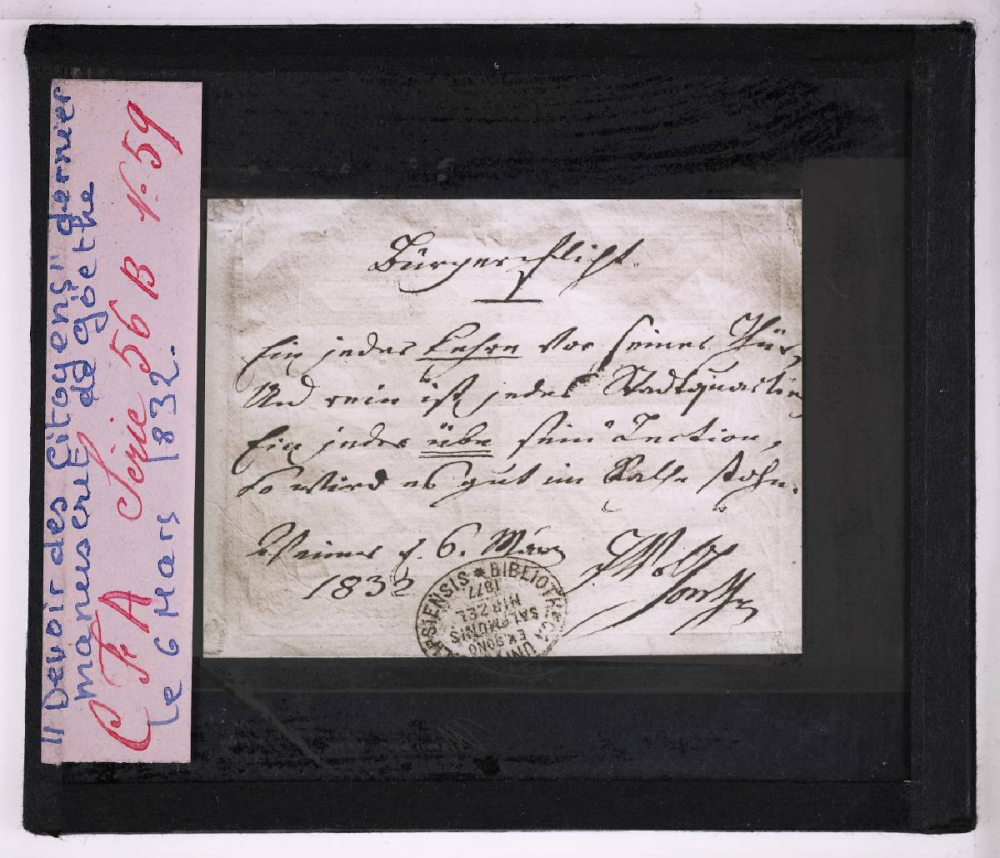 "Devoir des Citoyens" dernier
manuscrit de Göethe
C F A Série 56 B N: 59
Le 6 Mars 1832.
Bürgerpflicht.
Ein jeder kehre vor seiner Thür,
Und rein ist jedes Stadtquartier
Ein jeder übe sein' Lection,
So wird es gut im Rathe stohn.
Weimar d. 6. März
1832
JWvGoethe
* BIBLIOTHECA UNI
PSIENSIS
EX DONO
SALOMONIS
HIRZEL
1877